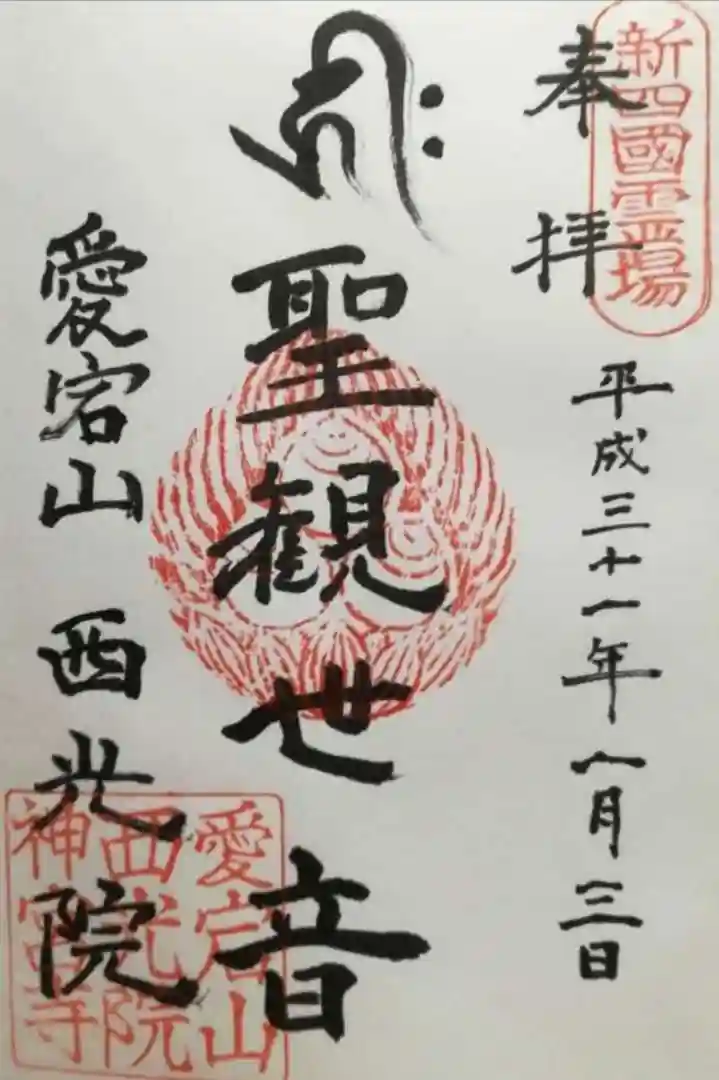 新四國霊場
奉拝
平成三十一年一月三日
𑖭𑖾
聖観世音
愛宕山 西光院
愛宕山
西光院
神宮寺